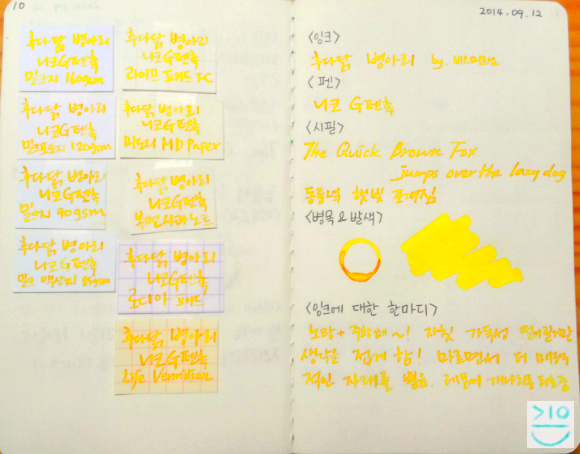 10
후다닭 병아리
니코G펜촉
밀크지 160gsm
후다닭 병아리
니코G펜촉
라이프 패드 FC
후다닭 병아리
니코G펜촉
120gsm
후다닭 병아리
니코G펜촉
미도리 MD Paper
후다닭 병아리
니코G펜촉
90gsm
후다닭 병아리
니코G펜촉
복면사과노트
후다닭 병아리
니코G펜촉
85gsm
후다닭 병아리
니코G펜촉
로디아 패드
후다닭 병아리
니코G펜촉
Life Vermilion
2014.09.12
<잉크>
후다닭 병아리 by.
<펜>
니코 G펜촉
<시필>
The Quick Brown Fox
jumps over the lazy dog
동틀녘 햇빛 포개짐
<병목 & 발색>
<잉크에 대한 한마디>
노랑+주황빛~! 자칫 가독성 떨어질거란
생각을 접게 함! 마르면서 더 매력
적인 자태를 뽐음.